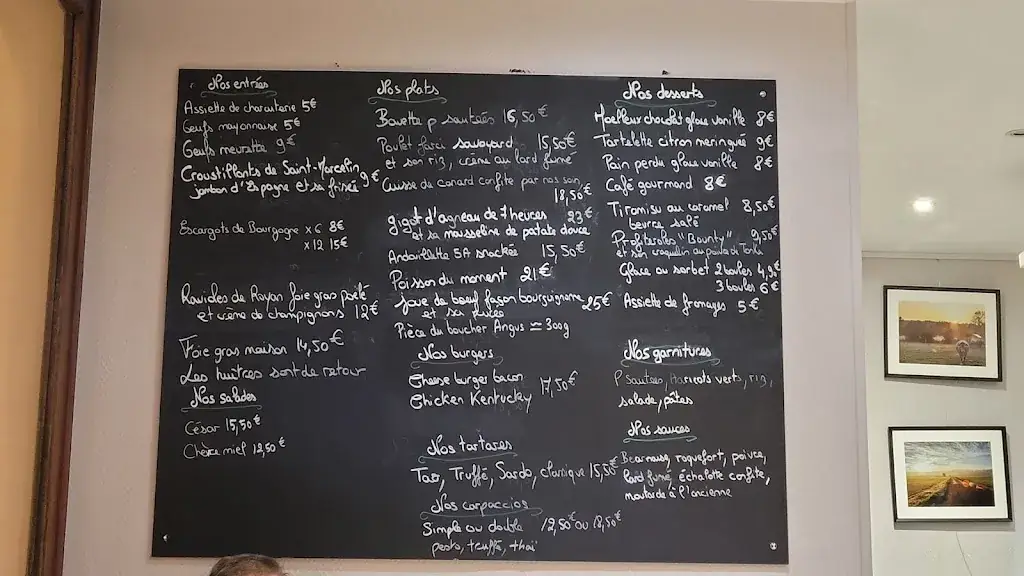 Nos entrées
Assiette de charcuterie 5€
Oeufs mayonnaise 5€
Oeufs meurette 9€
Croustillants de Saint-Marcelin
jambon d'Espagne et sa frisée 9€
Escargots de Bourgogne x 6 8€
x 12 15€
Ravioles de Royan foie gras poêlé
et crème de champignons 12€
Foie gras maison 14,50€
Les huîtres sont de retour
Nos salades
César 15,50€
Chèvre miel 12,50€
Nos plats
Bavette p sautées 16,50€
Poulet farci savoyard 15,50€
et son riz, crème au lard fumé
Cuisse de canard confite par nos soin
18,50€
gigot d'agneau de 7 heures 23€
et sa mousseline de patate douce
Andouillette 5A snackée 15,50€
Poisson du moment 21€
joue de boeuf façon bourguignonne 25€
et ses
Pièce du boucher Angus ≃ 300g
Nos burgers
Cheese burger bacon
17,50€
Chicken Kentucky
Nos tartares
Trad, Truffé, Sardo, classique 15,50€
Nos carpaccios
Simple ou double 12,50€ ou 18,50€
pesto, truffe, thaï
Nos desserts
Moelleux chocolat glace vanille 8€
Tartelette citron meringuée 9€
Pain perdu glace vanille 8€
Café gourmand 8€
Tiramisu au caramel 8,50€
beurre salé
Profiteroles "Bounty" 9,50€
et son craquelin au
Glace ou sorbet 2 boules 4,9€
3 boules 6€
Assiette de fromages 5€
Nos garnitures
P Sautées, haricots verts, riz,
salade, pâtes
Nos sauces
Bearnaise, roquefort, poivre,
lard fumé, échalotte confite,
moutarde à l'ancienne